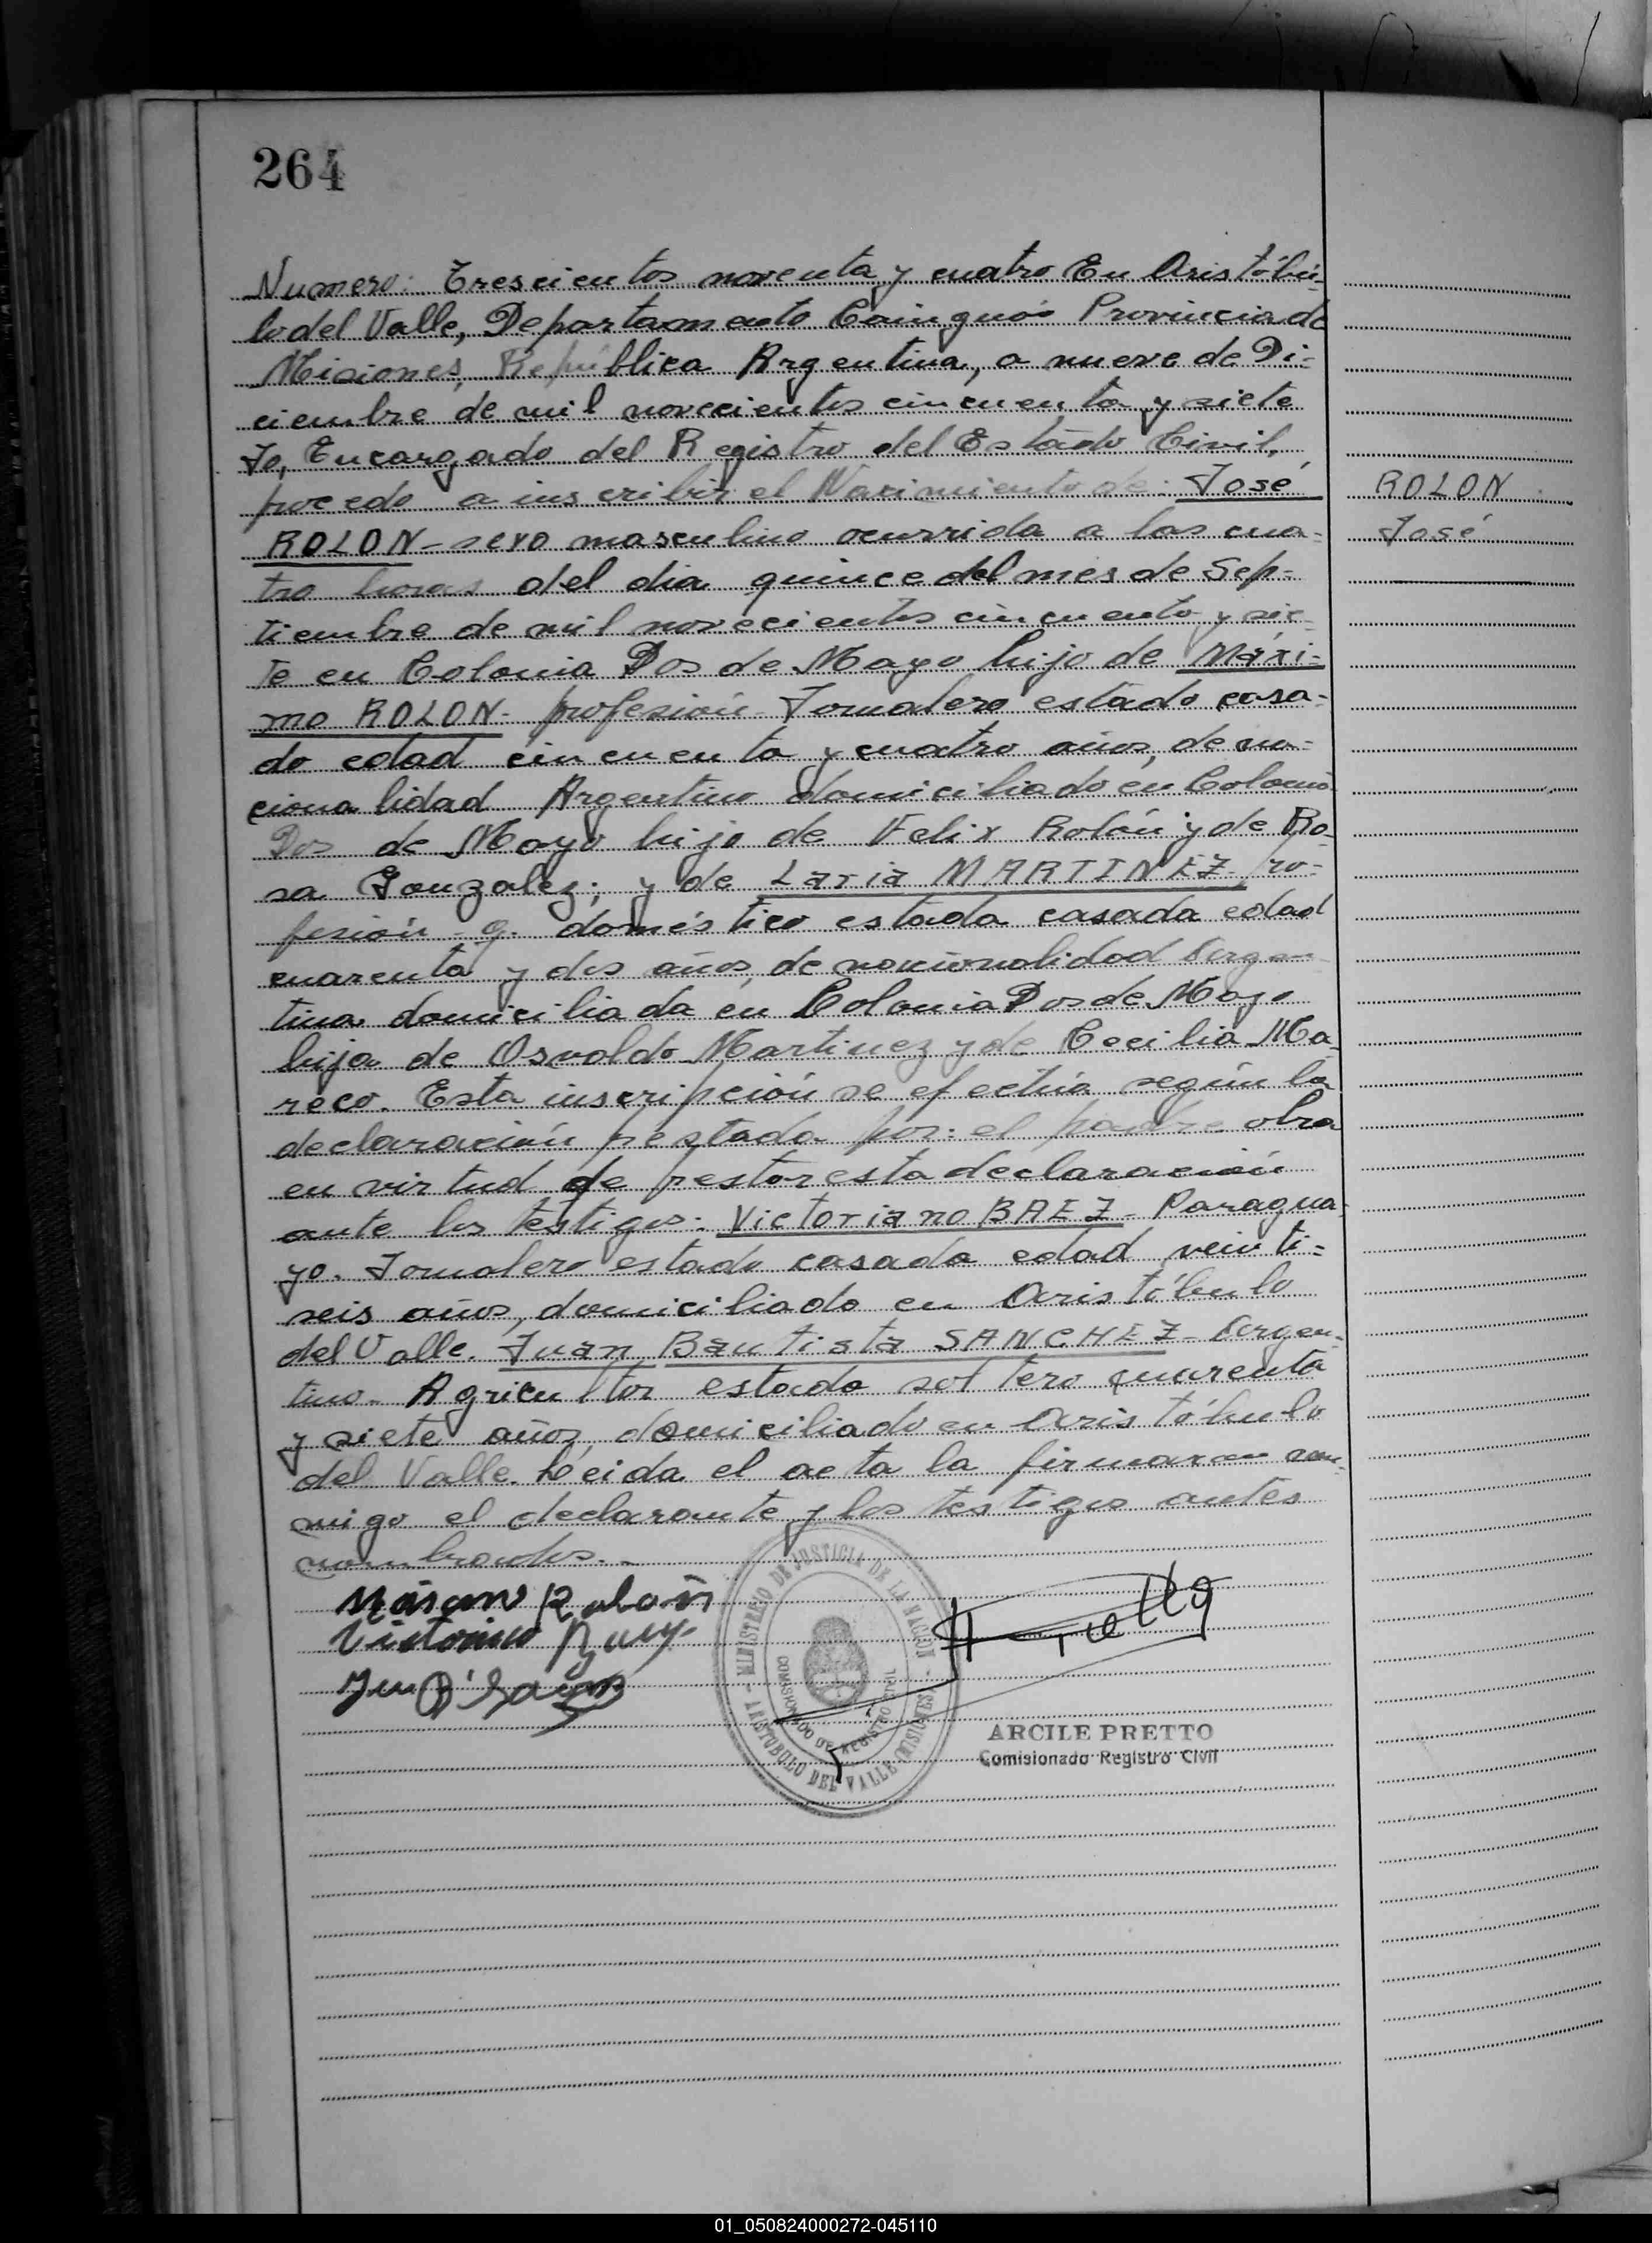 264
Numero: Trescientos noventa y cuatro En Aristóbu-
lo del Valle, Departamento Cainguás Provincia de
Misiones, República Argentina, a nueve de Di-
ciembre de mil novecientos cincuenta y siete
Yo, Encargado del Registro del Estado Civil,
procedo a inscribir el Nacimiento de: José
ROLON
ROLON - sexo masculino ocurrida a las cua-
José
tro horas del dia quince del mes de Sep-
tiembre de mil novecientos cincuenta y sie-
te en Colonia Dos de Mayo hijo de Máxi-
mo ROLON - profesión - Jornalero estado casa-
do edad cincuenta y cuatro años, de na-
cionalidad Argentino domiciliado en Colonia
Dos de Mayo hijo de Felix Rolón y de Ro-
sa Gonzalez; y de Laria MARTINEZ - pro-
fesión - q. doméstico estado casada edad
cuarenta y dos años, de nacionalidad Argen-
tina domiciliada en Colonia Dos de Mayo
hija de Osvaldo Martinez y de Cecilia Ma-
reco. Esta inscripción se efectúa según la
declaración prestada por: el padre obra
en virtud de prestar esta declaración
ante los testigos: Victoriano BAEZ - Paragua-
yo. Jornalero estado casado edad veinti-
seis años, domiciliado en Aristóbulo
del Valle. Juan Bautista SANCHEZ - Argen-
tino - Agricultor estado soltero cuarenta
y siete años, domiciliado en Aristóbulo
del Valle. Leida el acta la firmaron con-
migo el declarante y los testigos antes
nombrados. -
MINISTERIO DE JUSTICIA DE LA NACIÓN
COMISIONADO DE REGISTRO CIVIL
ARISTOBULO DEL VALLE (MISIONES)
ARCILE PRETTO
Comisionado Registro Civil
01_050824000272-045110